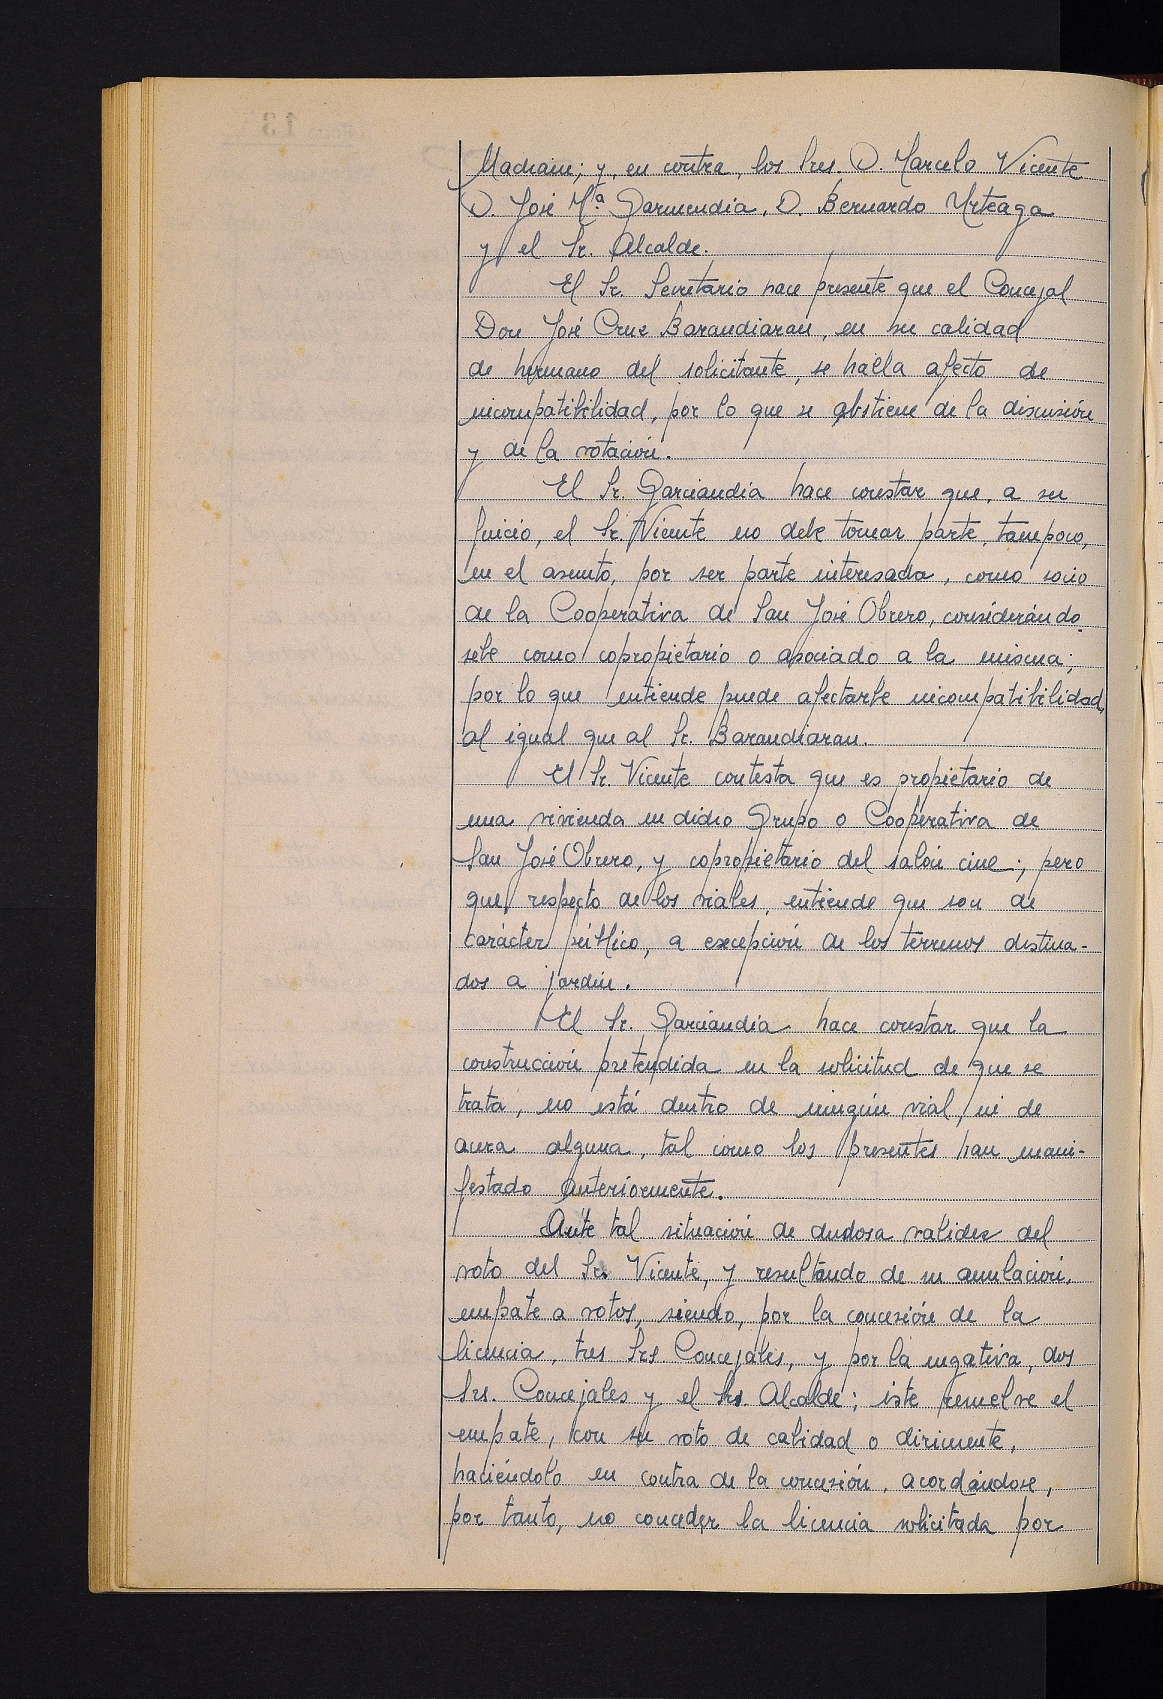 Madraiu; y, en contra, los Sres. D. Marcelo Vicente
D. José Mª Garmendia, D. Bernardo Urteaga
y el Sr. Alcalde.
El Sr. Secretario hace presente que el Concejal
Don José Cruz Barandiaran, en su calidad
de hermano del solicitante, se halla afecto de
incompatibilidad, por lo que se abstiene de la discusión
y de la votación.
El Sr. Garciandia hace constar que, a su
juicio, el Sr. Vicente no debe tomar parte, tampoco,
en el asunto, por ser parte interesada, como socio
de la Cooperativa de San José Obrero, considerándo-
sele como copropietario o asociado a la misma;
por lo que entiende puede afectarle incompatibilidad,
al igual que al Sr. Barandiaran.
El Sr. Vicente contesta que es propietario de
una vivienda en dicho Grupo o Cooperativa de
San José Obrero, y copropietario del salón cine; pero
que, respecto de los viales, entiende que son de
carácter público, a excepción de los terrenos destina-
dos a jardín.
El Sr. Garciandia hace constar que la
construcción pretendida en la solicitud de que se
trata, no está dentro de ningún vial, ni de
acera alguna, tal como los presentes han mani-
festado anteriormente.
Ante tal situación de dudosa validez del
voto del Sr. Vicente, y resultando de su anulación,
empate a votos, siendo, por la concesión de la
licencia, tres Srs Concejales, y por la negativa, dos
Srs. Concejales y el Sr. Alcalde; éste resuelve el
empate, con su voto de calidad o dirimente,
haciéndolo en contra de la concesión, acordándose,
por tanto, no conceder la licencia solicitada por